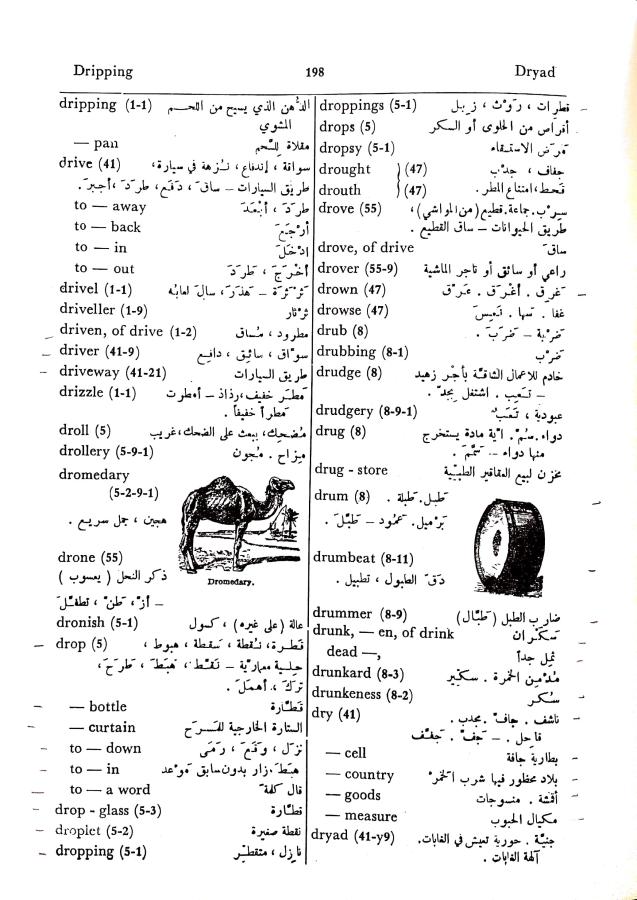 Dripping 198 Dryad
dripping (1-1) الدُّهن الذي يسيح من اللحم
المشوي
— pan مقلاة للشحم
drive (41) سواقة ، إندفاع ، نزهة في سيارة ،
طريق السيارات – ساقَ ، دفَع ، طردَ ، أجبرَ .
to — away طردَ ، أبْعَدَ
to — back أرجَعَ
to — in ادخَلَ
to — out أخْرجَ ، طردَ
drivel (1-1) ثَرْثَرَة – هَذَرَ ، سالَ لعابُه
driveller (1-9) ثرثار
driven, of drive (1-2) مطرود ، مُساق
driver (41-9) سوّاق ، سائق ، دافع
driveway (41-21) طريق السيارات
drizzle (1-1) مطر خفيف ، رذاذ – أمطرت
مطراً خفيفاً .
droll (5) مُضحِك ، يبعث على الضحك ، غريب
drollery (5-9-1) مِزاح . مُجون
dromedary
(5-2-9-1)
هجين ، جمل سريع .
Dromedary.
drone (55)
ذكر النحل ( يعسوب )
– أزَّ ، طنَّ ، تطفَّلَ
dronish (5-1) عالة (على غيره) ، كسول
drop (5) قطرة ، نُقطَة ، سَقطَة ، هبوط ،
حلية معمارية – نقَطَ ، هبَطَ ، طرحَ ،
تركَ ، أهملَ .
— bottle قطّارة
— curtain الستارة الخارجية للمسرَح
to — down نزل ، وقَعَ ، رَمَى
to — in هبَطَ ، زار بدون سابق موعد
to — a word قال كلمةً
drop - glass (5-3) قطّارة
droplet (5-2) نقطة صغيرة
dropping (5-1) نازل ، متقطّر
droppings (5-1) قطرات ، رَوْث ، زبل
drops (5) أقراص من الحلوى أو السكر
dropsy (5-1) مَرض الاستسقاء
drought } (47) جفاف ، جدْب
drouth } (47) قحط ، امتناع المطر .
drove (55) سِرْب ، جماعة ، قطيع (من المواشي) ،
طريق الحيوانات – ساق القطيع .
drove, of drive ساقَ
drover (55-9) راعي أو سائق أو تاجر الماشية
drown (47) غرق . أغْرق . غرّق
drowse (47) غفا . سها . نعِسَ
drub (8) ضربة – ضرَبَ .
drubbing (8-1) ضرْب
drudge (8) خادم للاعمال الشاقة بأجر زهيد
– تعِب . اشتغل بجدّ .
drudgery (8-9-1) عبودية ، تعَب
drug (8) دواء . سُمّ . اية مادة يستخرج
منها دواء – سمّمَ .
drug - store مخزن لبيع العقاقير الطبيّة
drum (8) طبل . طبلة .
برْميل . عمود – طبّلَ .
drumbeat (8-11)
دقّ الطبول ، تطبيل .
drummer (8-9) ضارب الطبل (طبّال)
drunk, — en, of drink سكْران
dead —, ثمِل جداً
drunkard (8-3) مُدْمِن الخمرة . سكّير
drunkeness (8-2) سُكر
dry (41) ناشف . جافّ . مجدب .
قاحل . – جفّ . جفّف
— cell بطارية جافة
— country بلاد محظور فيها شرب الخمر
— goods أقمشة . منسوجات
— measure مكيال الحبوب
dryad (41-y9) جنيّة . حورية تعيش في الغابات .
آلهة الغابات .